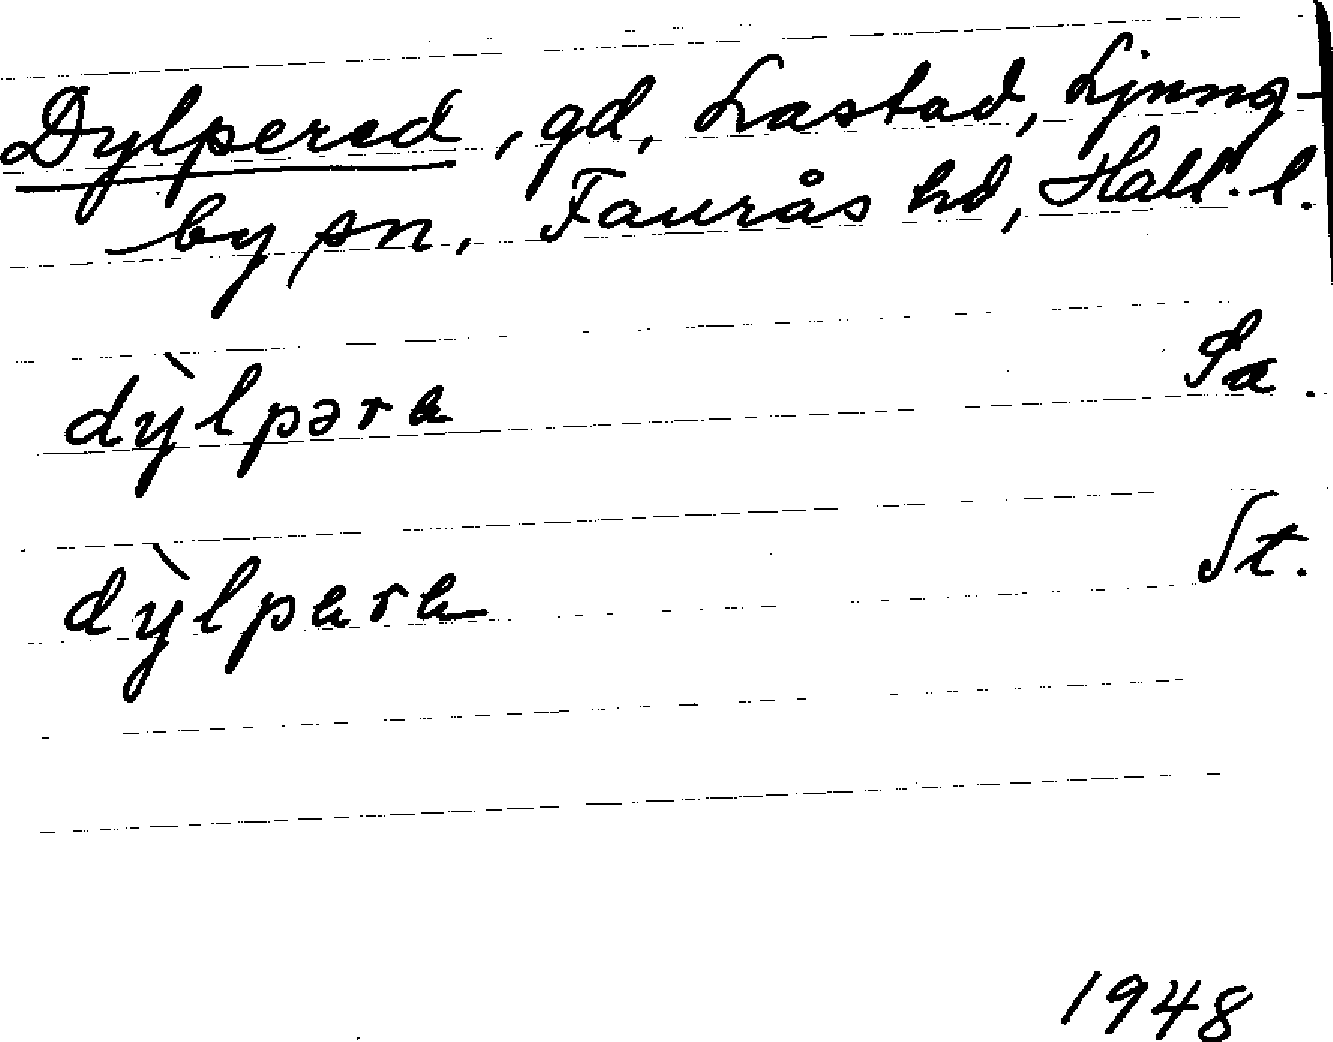 Dylpered, gd, Lastad, Ljung-
by sn, Faurås hd, Hall. l.
dy̍̀lpəra Sa.
dy̍̀lpara St.
1948